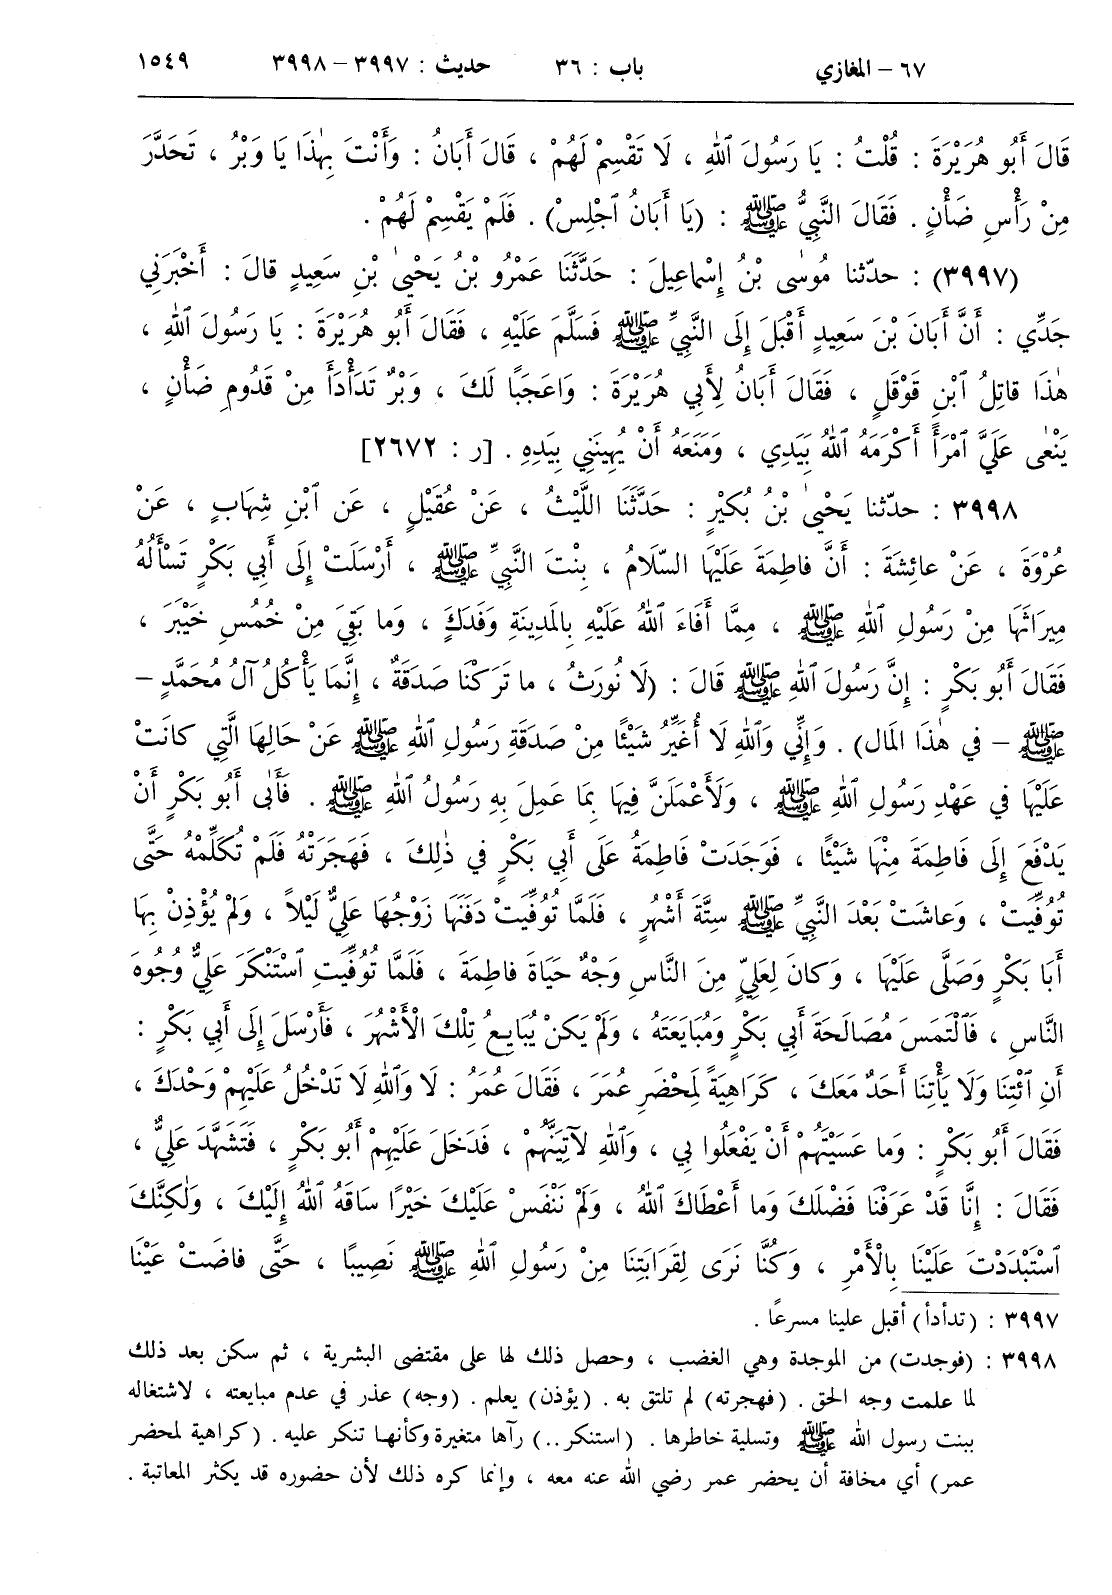 ٦٧ – المغازي باب : ٣٦ حديث : ٣٩٩٧ – ٣٩٩٨ ١٥٤٩
قَالَ أَبُو هُرَيْرَةَ : قُلْتُ : يَا رَسُولَ ٱللهِ ، لَا تَقْسِمْ لَهُمْ ، قَالَ أَبَانُ : وَأَنْتَ بِهٰذَا يَا وَبْرُ ، تَحَدَّرَ
مِنْ رَأْسِ ضَأْنٍ . فَقَالَ النَّبِيُّ ﷺ : (يَا أَبَانُ ٱجْلِسْ) . فَلَمْ يَقْسِمْ لَهُمْ .
(٣٩٩٧) : حدّثنا مُوسٰى بْنُ إِسْمَاعِيلَ : حَدَّثَنَا عَمْرُو بْنُ يَحْيىٰ بْنِ سَعِيدٍ قالَ : أَخْبَرَنِي
جَدِّي : أَنَّ أَبَانَ بْنَ سَعِيدٍ أَقْبَلَ إِلَى النَّبِيِّ ﷺ فَسَلَّمَ عَلَيْهِ ، فَقَالَ أَبُو هُرَيْرَةَ : يَا رَسُولَ ٱللهِ ،
هٰذَا قاتِلُ ٱبْنِ قَوْقَلٍ ، فَقَالَ أَبَانُ لِأَبِي هُرَيْرَةَ : وَاعَجَبًا لَكَ ، وَبْرٌ تَدَأْدَأَ مِنْ قَدُومِ ضَأْنٍ ،
يَنْعٰى عَلَيَّ ٱمْرَأً أَكْرَمَهُ ٱللهُ بِيَدِي ، وَمَنَعَهُ أَنْ يُهِينَنِي بِيَدِهِ . [ر : ٢٦٧٢]
٣٩٩٨ : حدّثنا يَحْيىٰ بْنُ بُكَيْرٍ : حَدَّثَنَا اللَّيْثُ ، عَنْ عُقَيْلٍ ، عَنِ ٱبْنِ شِهَابٍ ، عَنْ
عُرْوَةَ ، عَنْ عائِشَةَ : أَنَّ فاطِمَةَ عَلَيْهَا السَّلَامُ ، بِنْتَ النَّبِيِّ ﷺ ، أَرْسَلَتْ إِلَى أَبِي بَكْرٍ تَسْأَلُهُ
مِيرَاثَهَا مِنْ رَسُولِ ٱللهِ ﷺ ، مِمَّا أَفَاءَ ٱللهُ عَلَيْهِ بِالمَدِينَةِ وَفَدَكٍ ، وَما بَقِيَ مِنْ خُمُسِ خَيْبَرَ ،
فَقَالَ أَبُو بَكْرٍ : إِنَّ رَسُولَ ٱللهِ ﷺ قَالَ : (لَا نُورَثُ ، ما تَرَكْنَا صَدَقَةٌ ، إِنَّمَا يَأْكُلُ آلُ مُحَمَّدٍ –
ﷺ – في هٰذَا المَالِ) . وَإِنِّي وَٱللهِ لَا أُغَيِّرُ شَيْئًا مِنْ صَدَقَةِ رَسُولِ ٱللهِ ﷺ عَنْ حالِهَا الَّتِي كانَتْ
عَلَيْهَا في عَهْدِ رَسُولِ ٱللهِ ﷺ ، وَلَأَعْمَلَنَّ فِيهَا بِمَا عَمِلَ بِهِ رَسُولُ ٱللهِ ﷺ . فَأَبٰى أَبُو بَكْرٍ أَنْ
يَدْفَعَ إِلَى فَاطِمَةَ مِنْهَا شَيْئًا ، فَوَجَدَتْ فَاطِمَةُ عَلَى أَبِي بَكْرٍ في ذٰلِكَ ، فَهَجَرَتْهُ فَلَمْ تُكَلِّمْهُ حَتَّى
تُوُفِّيَتْ ، وَعاشَتْ بَعْدَ النَّبِيِّ ﷺ سِتَّةَ أَشْهُرٍ ، فَلَمَّا تُوُفِّيَتْ دَفَنَهَا زَوْجُهَا عَلِيٌّ لَيْلاً ، وَلَمْ يُؤْذِنْ بِهَا
أَبَا بَكْرٍ وَصَلَّى عَلَيْهَا ، وَكانَ لِعَلِيٍّ مِنَ النَّاسِ وَجْهٌ حَيَاةَ فاطِمَةَ ، فَلَمَّا تُوُفِّيَتِ ٱسْتَنْكَرَ عَلِيٌّ وُجُوهَ
النَّاسِ ، فَٱلْتَمَسَ مُصَالَحَةَ أَبِي بَكْرٍ وَمُبَايَعَتَهُ ، وَلَمْ يَكُنْ يُبَايِعُ تِلْكَ الْأَشْهُرَ ، فَأَرْسَلَ إِلَى أَبِي بَكْرٍ :
أَنِ ٱئْتِنَا وَلَا يَأْتِنَا أَحَدٌ مَعَكَ ، كَرَاهِيَةً لِمَحْضَرِ عُمَرَ ، فَقَالَ عُمَرُ : لَا وَٱللهِ لَا تَدْخُلُ عَلَيْهِمْ وَحْدَكَ ،
فَقَالَ أَبُو بَكْرٍ : وَما عَسَيْتَهُمْ أَنْ يَفْعَلُوا بِي ، وَٱللهِ لآتِيَنَّهُمْ ، فَدَخَلَ عَلَيْهِمْ أَبُو بَكْرٍ ، فَتَشَهَّدَ عَلِيٌّ ،
فَقَالَ : إِنَّا قَدْ عَرَفْنَا فَضْلَكَ وَما أَعْطَاكَ ٱللهُ ، وَلَمْ نَنْفَسْ عَلَيْكَ خَيْرًا ساقَهُ ٱللهُ إِلَيْكَ ، وَلٰكِنَّكَ
ٱسْتَبْدَدْتَ عَلَيْنَا بِالْأَمْرِ ، وَكُنَّا نَرَى لِقَرَابَتِنَا مِنْ رَسُولِ ٱللهِ ﷺ نَصِيبًا ، حَتَّى فاضَتْ عَيْنَا
٣٩٩٧ : (تدأدأ) أقبل علينا مسرعًا .
٣٩٩٨ : (فوجدت) من الموجدة وهي الغضب ، وحصل ذلك لها على مقتضى البشرية ، ثم سكن بعد ذلك
لما علمت وجه الحق . (فهجرته) لم تلتق به . (يؤذن) يعلم . (وجه) عذر في عدم مبايعته ، لاشتغاله
ببنت رسول الله ﷺ وتسلية خاطرها . (استنكر ..) رآها متغيرة وكأنها تنكر عليه . (كراهية لمحضر
عمر) أي مخافة أن يحضر عمر رضي الله عنه معه ، وإنما كره ذلك لأن حضوره قد يكثر المعاتبة .